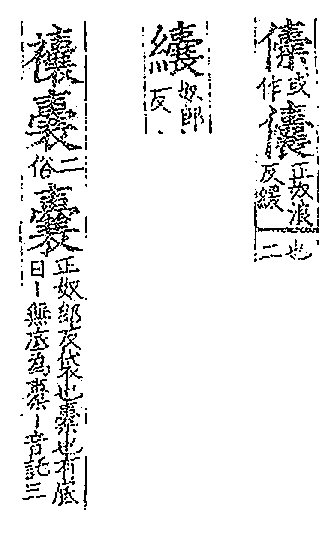 或作儾正奴浪反緩也二
奴郎反
囊二俗囊正奴郎反袋也橐也有底曰丨無底為橐丨音託三